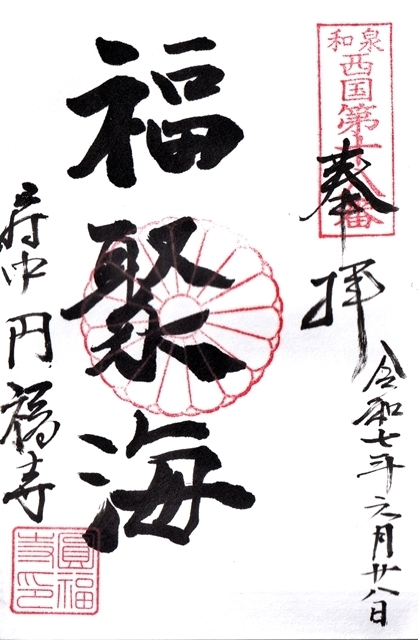 和泉
西国第十八番
奉拝
令和七年六月廿八日
福聚海
府中
円福寺
圓福
寺印